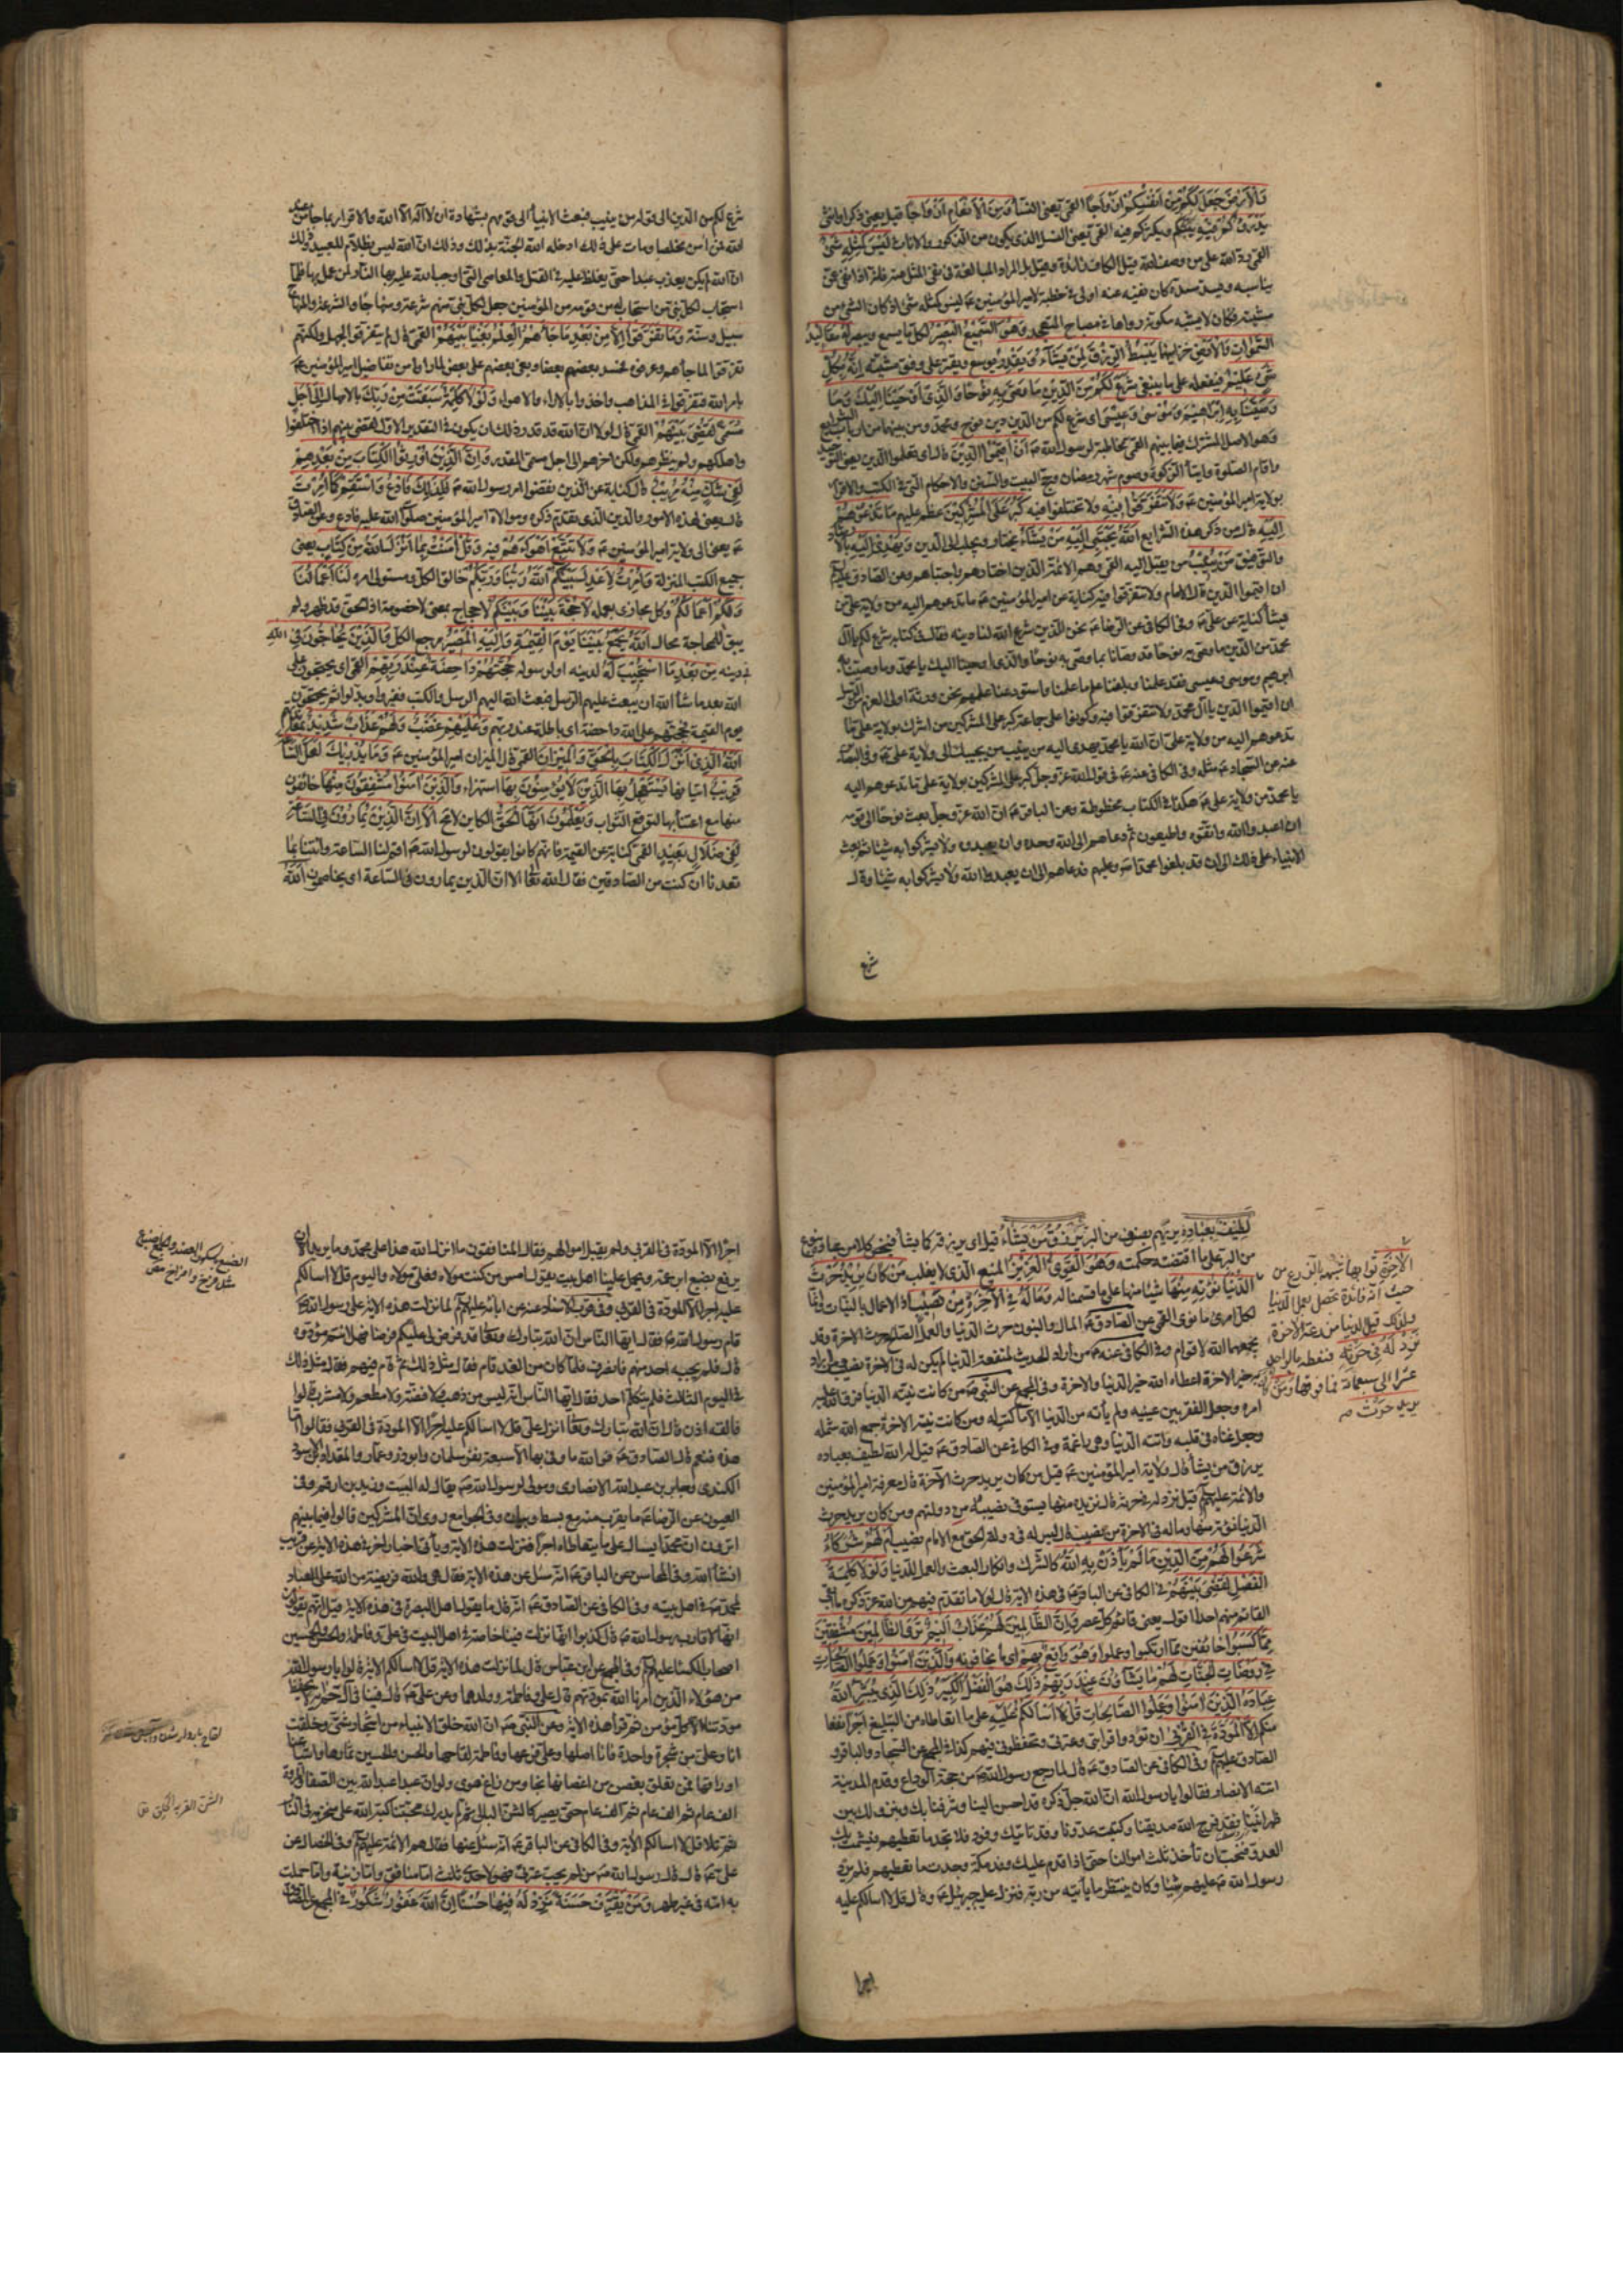 وَالْأَرْضِ جَعَلَ لَكُمْ مِنْ أَنْفُسِكُمْ أَزْوَاجًا القمي يعني النساء وَمِنَ الْأَنْعَامِ أَزْوَاجًا قيل يعني ذكرا وانثى
يَذْرَؤُكُمْ فِيهِ يبثكم ويكثركم فيه القمي يعني النسل الذي يكون من الذكور والاناث لَيْسَ كَمِثْلِهِ شَيْءٌ
القمي رد الله على من وصف الله قيل الكاف زائدة وقيل بل المراد المبالغة في نفي المثل عنه فانه اذا نفى عمن
يناسبه ويسد مسده كان نفيه عنه اولى في خطبة لامير المؤمنين ع ليس كمثله شيء اذ كان الشيء من
مشيته فكان لا يشبه مكونه رواها في مصباح المتهجد وَهُوَ السَّمِيعُ الْبَصِيرُ لكل ما يسمع ويبصر لَهُ مَقَالِيدُ
السَّمَوَاتِ وَالْأَرْضِ خزائنها يَبْسُطُ الرِّزْقَ لِمَنْ يَشَاءُ وَيَقْدِرُ يوسع ويقتر على وفق مشيته إِنَّهُ بِكُلِّ
شَيْءٍ عَلِيمٌ فيفعله على ما ينبغي شَرَعَ لَكُمْ مِنَ الدِّينِ مَا وَصَّى بِهِ نُوحًا وَالَّذِي أَوْحَيْنَا إِلَيْكَ وَمَا
وَصَّيْنَا بِهِ إِبْرَاهِيمَ وَمُوسَى وَعِيسَى اي شرع لكم من الدين دين نوح ومحمد ومن بينهما من ارباب الشرايع
وهو الاصل المشترك فيما بينهم القمي مخاطبة لرسول الله ص أَنْ أَقِيمُوا الدِّينَ قال اي تعلموا الدين يعني التوحيد
واقام الصلوة وايتاء الزكوة وصوم شهر رمضان وحج البيت والسنن والاحكام التي في الكتب والاقرار
بولاية امير المؤمنين ع وَلَا تَتَفَرَّقُوا فِيهِ ولا تختلفوا فيه كَبُرَ عَلَى الْمُشْرِكِينَ عظم عليهم مَا تَدْعُوهُمْ
إِلَيْهِ قال من ذكر هذه الشرايع اللَّهُ يَجْتَبِي إِلَيْهِ مَنْ يَشَاءُ يختار ويجلب الى الدين وَيَهْدِي إِلَيْهِ بالارشاد
والتوفيق مَنْ يُنِيبُ من يقبل اليه القمي وهم الائمة الذين اختارهم واجتباهم وعن الصادق عليه السلام
ان اقيموا الدين قال الامام ولا تتفرقوا فيه كناية عن امير المؤمنين ع ما تدعوهم اليه من ولاية علي من
يشاء كناية عن علي ع وفي الكافي عن الرضا ع نحن الذين شرع الله لنا دينه فقال في كتابه شرع لكم يا آل
محمد من الدين ما وصى به نوحا قد وصانا بما وصى به نوحا والذي اوحينا اليك يا محمد وما وصينا به
ابرهيم وموسى وعيسى فقد علمنا وبلغنا علم ما علمنا واستودعنا علمهم نحن ورثة اولي العزم من الرسل
ان اقيموا الدين يا آل محمد ولا تتفرقوا فيه وكونوا على جماعة كبر على المشركين من اشرك بولاية علي ما
تدعوهم اليه من ولاية علي ان الله يا محمد يهدي اليه من ينيب من يجيبك الى ولاية علي ع وفي البصائر
عنه عن السجاد ع مثله وفي الكافي عنه ع في قول الله عز وجل كبر على المشركين بولاية علي ما تدعوهم اليه
يا محمد من ولاية علي ع هكذا في الكتاب مخطوطة وعن الباقر ع ان الله عز وجل بعث نوحا الى قومه
ان اعبدوا الله واتقوه واطيعون ثم دعاهم الى الله وحده وان يعبدوه ولا يشركوا به شيئا ثم بعث
الانبياء على ذلك الى ان قد بلغوا محمدا ص وعليهم فدعاهم الى ان يعبدوا الله ولا يشركوا به شيئا وقال
شرع
شرع لكم من الدين الى قوله من ينيب فبعث الانبياء الى قومهم بشهادة ان لا اله الا الله والاقرار بما جاء من عند
الله فمن امن مخلصا ومات على ذلك ادخله الله الجنة بذلك وذلك ان الله ليس بظلام للعبيد وذلك
ان الله لم يكن يعذب عبدا حتى يغلظ عليه في القتل والمعاصي التي اوجب الله عليه بها النار لمن عمل بها فلما
استجاب لكل نبي من استجاب له من قومه من المؤمنين جعل لكل نبي منهم شرعة ومنهاجا والشرعة والمنهاج
سبيل وسنة وَمَا تَفَرَّقُوا إِلَّا مِنْ بَعْدِ مَا جَاءَهُمُ الْعِلْمُ بَغْيًا بَيْنَهُمْ القمي قال لم يتفرقوا لجهل ولكنهم
تفرقوا لما جاءهم وعرفوه فحسد بعضهم بعضا وبغى بعضهم على بعض لما راوا من تفاضيل امير المؤمنين ع
بامر الله فتفرقوا في المذاهب واخذوا بالاراء والاهواء وَلَوْلَا كَلِمَةٌ سَبَقَتْ مِنْ رَبِّكَ بالامهال إِلَى أَجَلٍ
مُسَمًّى لَقُضِيَ بَيْنَهُمْ القمي قال لولا ان الله قد قدر ذلك ان يكون في التقدير الاول لقضى بينهم اذا اختلفوا
واهلكهم ولم ينظرهم ولكن اخرهم الى اجل مسمى المقدر وَإِنَّ الَّذِينَ أُورِثُوا الْكِتَابَ مِنْ بَعْدِهِمْ
لَفِي شَكٍّ مِنْهُ مُرِيبٍ قال كناية عن الذين نقضوا امر رسول الله ص فَلِذَلِكَ فَادْعُ وَاسْتَقِمْ كَمَا أُمِرْتَ
قال يعني لهذه الامور والدين الذي تقدم ذكره وموالاة امير المؤمنين صلوات الله عليه فادع وعن الصادق
ع يعني الى ولاية امير المؤمنين ع وَلَا تَتَّبِعْ أَهْوَاءَهُمْ فيه وَقُلْ آمَنْتُ بِمَا أَنْزَلَ اللَّهُ مِنْ كِتَابٍ يعني
جميع الكتب المنزلة وَأُمِرْتُ لِأَعْدِلَ بَيْنَكُمُ اللَّهُ رَبُّنَا وَرَبُّكُمْ خالق الكل ومتولي امره لَنَا أَعْمَالُنَا
وَلَكُمْ أَعْمَالُكُمْ وكل مجازى بعمله لَا حُجَّةَ بَيْنَنَا وَبَيْنَكُمُ لا حجاج بمعنى لا خصومة اذ الحق قد ظهر ولم
يبق للمحاجة مجال اللَّهُ يَجْمَعُ بَيْنَنَا يوم القيمة وَإِلَيْهِ الْمَصِيرُ مرجع الكل وَالَّذِينَ يُحَاجُّونَ فِي اللَّهِ
في دينه مِنْ بَعْدِ مَا اسْتُجِيبَ لَهُ لدينه او لرسوله حُجَّتُهُمْ دَاحِضَةٌ عِنْدَ رَبِّهِمْ القمي اي يحتجون على
الله بعد ما شاء الله ان يبعث عليهم الرسل فبعث الله اليهم الرسل والكتب فغيروا وبدلوا ثم يحتجون
يوم القيمة فحجتهم على الله داحضة اي باطلة عند ربهم وَعَلَيْهِمْ غَضَبٌ وَلَهُمْ عَذَابٌ شَدِيدٌ بكفرهم
اللَّهُ الَّذِي أَنْزَلَ الْكِتَابَ بِالْحَقِّ وَالْمِيزَانَ القمي قال الميزان امير المؤمنين ع وَمَا يُدْرِيكَ لَعَلَّ السَّاعَةَ
قَرِيبٌ اتيانها يَسْتَعْجِلُ بِهَا الَّذِينَ لَا يُؤْمِنُونَ بِهَا استهزاء وَالَّذِينَ آمَنُوا مُشْفِقُونَ مِنْهَا خائفون
منها مع اعتنائها لتوقع الثواب وَيَعْلَمُونَ أَنَّهَا الْحَقُّ الكاين لا محالة أَلَا إِنَّ الَّذِينَ يُمَارُونَ فِي السَّاعَةِ
لَفِي ضَلَالٍ بَعِيدٍ القمي كناية عن القيمة فانهم كانوا يقولون لرسول الله ص اقم لنا الساعة وائتنا بما
تعدنا ان كنت من الصادقين فقال الله تعالى الا ان الذين يمارون في الساعة اي يخاصمون اللَّهُ
لَطِيفٌ بِعِبَادِهِ يربيهم بصنوف من البر يَرْزُقُ مَنْ يَشَاءُ قيل اي يرزقه كما يشاء فيخص كلا من عباده بنوع
من البر على ما اقتضته حكمته وَهُوَ الْقَوِيُّ الْعَزِيزُ المنيع الذي لا يغلب مَنْ كَانَ يُرِيدُ حَرْثَ
الدُّنْيَا نُؤْتِهِ مِنْهَا شيئا منها على ما قسمنا له وَمَا لَهُ فِي الْآخِرَةِ مِنْ نَصِيبٍ اذ الاعمال بالنيات وانما
لكل امرئ ما نوى القمي عن الصادق ع المال والبنون حرث الدنيا والعمل الصالح حرث الاخرة وقد
يجمعهما الله لاقوام وفي الكافي عنه ع من أراد الحديث لمنفعة الدنيا لم يكن له في الاخرة نصيب ومن اراد
به خير الاخرة اعطاه الله خير الدنيا والاخرة وفي المجمع عن النبي ص من كانت نيته الدنيا فرق الله عليه
امره وجعل الفقر بين عينيه ولم يأته من الدنيا الا ما كتب له ومن كانت نيته الاخرة جمع الله شمله
وجعل غناه في قلبه واتته الدنيا وهي راغمة وفي الكافي عن الصادق ع قيل له الله لطيف بعباده
يرزق من يشاء قال ولاية امير المؤمنين ع قيل من كان يريد حرث الآخرة قال معرفة امير المؤمنين
والائمة عليهم السلام قيل نزد له في حرثه قال نزيده منها يستوفي نصيبه من دولتهم ومن كان يريد حرث
الدنيا نؤته منها وما له في الاخرة من نصيب قال ليس له في دولة الحق مع الامام نصيب أَمْ لَهُمْ شُرَكَاءُ
شَرَعُوا لَهُمْ مِنَ الدِّينِ مَا لَمْ يَأْذَنْ بِهِ اللَّهُ كالشرك وانكار البعث والعمل للدنيا وَلَوْلَا كَلِمَةُ
الْفَصْلِ لَقُضِيَ بَيْنَهُمْ في الكافي عن الباقر ع في هذه الاية قال لولا ما تقدم فيهم من الله عز ذكره ما ابقى
القائم منهم احدا اقول يعني قائم كل عصر وَإِنَّ الظَّالِمِينَ لَهُمْ عَذَابٌ أَلِيمٌ تَرَى الظَّالِمِينَ مُشْفِقِينَ
مِمَّا كَسَبُوا خائفين مما ارتكبوا وعملوا وَهُوَ وَاقِعٌ بِهِمْ اي ما يخافونه وَالَّذِينَ آمَنُوا وَعَمِلُوا الصَّالِحَاتِ
فِي رَوْضَاتِ الْجَنَّاتِ لَهُمْ مَا يَشَاؤُنَ عِنْدَ رَبِّهِمْ ذَلِكَ هُوَ الْفَضْلُ الْكَبِيرُ ذَلِكَ الَّذِي يُبَشِّرُ اللَّهُ
عِبَادَهُ الَّذِينَ آمَنُوا وَعَمِلُوا الصَّالِحَاتِ قُلْ لَا أَسْأَلُكُمْ عَلَيْهِ على ما اتعاطاه من التبليغ أَجْرًا نفعا
منكم إِلَّا الْمَوَدَّةَ فِي الْقُرْبَى ان تودوا قرابتي وعترتي وتحفظوني فيهم كذا في المجمع عن السجاد والباقر و
الصادق عليهم السلام وفي الكافي عن الصادق ع قال لما رجع رسول الله ص من حجة الوداع وقدم المدينة
اتته الانصار فقالوا يا رسول الله ان الله جل ذكره قد احسن الينا وشرفنا بك وبنزولك بين
ظهرانينا فقد فرح الله صديقنا وكبت عدونا وقد تاتيك وفود فلا تجد ما تعطيهم فيشمت بك
العدو فنحب ان تأخذ ثلث اموالنا حتى اذا قدم عليك وفد مكة وجدت ما تعطيهم فلم يرد
رسول الله ص عليهم شيئا وكان ينتظر ما يأتيه من ربه فنزل عليه جبرئيل ع وقال قل لا اسالكم عليه
اجرا
الْآخِرَةِ ثوابها شبهه بالزرع من
حيث انه فائدة تحصل بعمل الدنيا
ولذلك قيل الدنيا مزرعة الاخرة
نَزِدْ لَهُ فِي حَرْثِهِ فنعطه بالواحد
عشرا الى سبعمائة فما فوقها وَمَنْ كَانَ
يُرِيدُ حَرْثَ ص
اجرا الا المودة في القربى ولم يقبل اموالهم فقال المنافقون ما انزل الله هذا على محمد وما يريد الا ان
يرفع بضبع ابن عمه ويحمل علينا اهل بيته يقول امس من كنت مولاه فعلي مولاه واليوم قل لا اسالكم
عليه اجرا الا المودة في القربى وفي قرب الاسناد عنه عن ابائه عليهم السلام لما نزلت هذه الاية على رسول الله ص
قام رسول الله ص فقال ايها الناس ان الله تبارك وتعالى قد فرض لي عليكم فرضا فهل انتم مؤدوه
قال فلم يجبه احد منهم فانصرف فلما كان من الغد قام فقال مثل ذلك ثم قام فيهم فقال مثل ذلك
في اليوم الثالث فلم يتكلم احد فقال ايها الناس انه ليس من ذهب ولا فضة ولا مطعم ولا مشرب قالوا
فالقه اذن قال ان الله تبارك وتعالى انزل علي قل لا اسالكم عليه اجرا الا المودة في القربى فقالوا اما
هذه فنعم قال الصادق ع فو الله ما وفى بها الا سبعة نفر سلمان وابو ذر وعمار والمقداد بن الاسود
الكندي وجابر بن عبد الله الانصاري ومولى لرسول الله ص يقال له البيت وزيد بن ارقم وفي
العيون عن الرضا ع ما يقرب منه مع بسط وبيان وفي الجوامع روي ان المشركين قالوا فيما بينهم
اترون ان محمدا يسال على ما يتعاطاه اجرا فنزلت هذه الاية ويأتي اخبار اخر في هذه الاية عن قريب
انشاء الله وفي المحاسن عن الباقر ع انه سئل عن هذه الاية فقال هي والله فريضة من الله على العباد
لمحمد ص في اهل بيته وفي الكافي عن الصادق ع انه قال ما يقول اهل البصرة في هذه الاية قيل انهم يقولون
انها لاقارب رسول الله ص قال كذبوا انها نزلت فينا خاصة في اهل البيت في علي وفاطمة والحسن والحسين
اصحاب الكساء عليهم السلام وفي المجمع عن ابن عباس قال لما نزلت هذه الاية قل لا اسالكم الاية قالوا يا رسول الله
من هؤلاء الذين امرنا الله بمودتهم قال علي وفاطمة وولدها وعن علي ع قال فينا في آل حم اية لا يحفظ
مودتنا الا كل مؤمن ثم قرأ هذه الاية وعن النبي ص ان الله خلق الانبياء من اشجار شتى وخلقت
انا وعلي من شجرة واحدة فانا اصلها وعلي فرعها وفاطمة لقاحها والحسن والحسين ثمارها واشياعنا
اوراقها فمن تعلق بغصن من اغصانها نجا ومن زاغ هوى ولو ان عبدا عبد الله بين الصفا والمروة
الف عام ثم الف عام ثم الف عام حتى يصير كالشن البالي ثم لم يدرك محبتنا اكبه الله على منخريه في النار
ثم تلا قل لا اسالكم الاية وفي الكافي عن الباقر ع انه سئل عنها فقال هم الائمة عليهم السلام وفي الخصال عن
علي ع قال قال رسول الله ص من لم يحب عترتي فهو لاحدى ثلث اما منافق واما لزنية واما حملت
به امه في غير طهر وَمَنْ يَقْتَرِفْ حَسَنَةً نَزِدْ لَهُ فِيهَا حُسْنًا إِنَّ اللَّهَ غَفُورٌ شَكُورٌ في المجمع عن الصادق
الضبع بسكون العضد والجمع اضباع
مثل فرخ وافراخ مص
الشن القربة الخلق ق